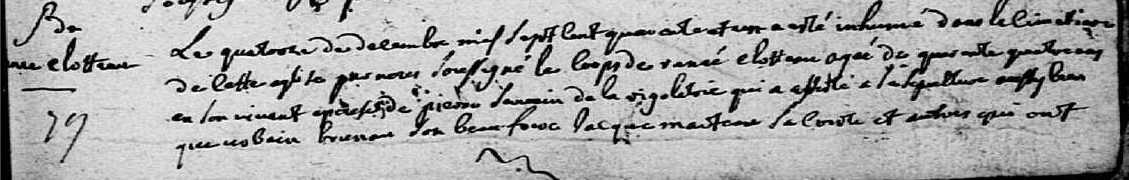 Be
rene elotteau
79
Le quatorze de decembre mil sept cent quarante et un a esté inhumé dans le cimetiere
de cette eglise par nous soussigné le corps de rené elotteau agé de quarante quatre ans
en son vivant epoux de pierre de la rigoletrie qui a assisté a la sepulture aussy bien
que urbain bruneau son beau frere Jacque marteau et autres qui ont